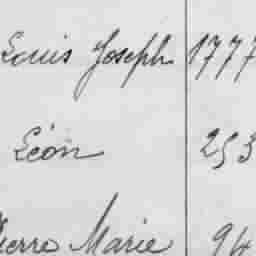 Louis Joseph 1777
Léon 253
Pierre Marie 94